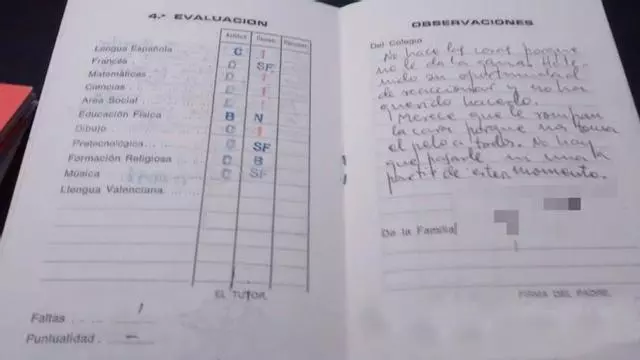 4.ª EVALUACION
Actitud Recuper.
Lengua Española C I
Francés C SF
Matemáticas D I
Ciencias D I
Area Social D I
Educación Física B N
Dibujo C I
Pretecnológica C SF
Formación Religiosa C B
Música C SF
Llengua Valenciana
EL TUTOR,
Faltas 1
Puntualidad -
OBSERVACIONES
Del Colegio
No hace las cosas porque
no le da la gana. Ha te-
nido su oportunidad
de reaccionar y no ha
querido hacerlo.
Merece que le rompan
la cara porque nos toma
el pelo a todos. No hay
que pasarle ni una a
partir de este momento.
De la Familia
FIRMA DEL PADRE,